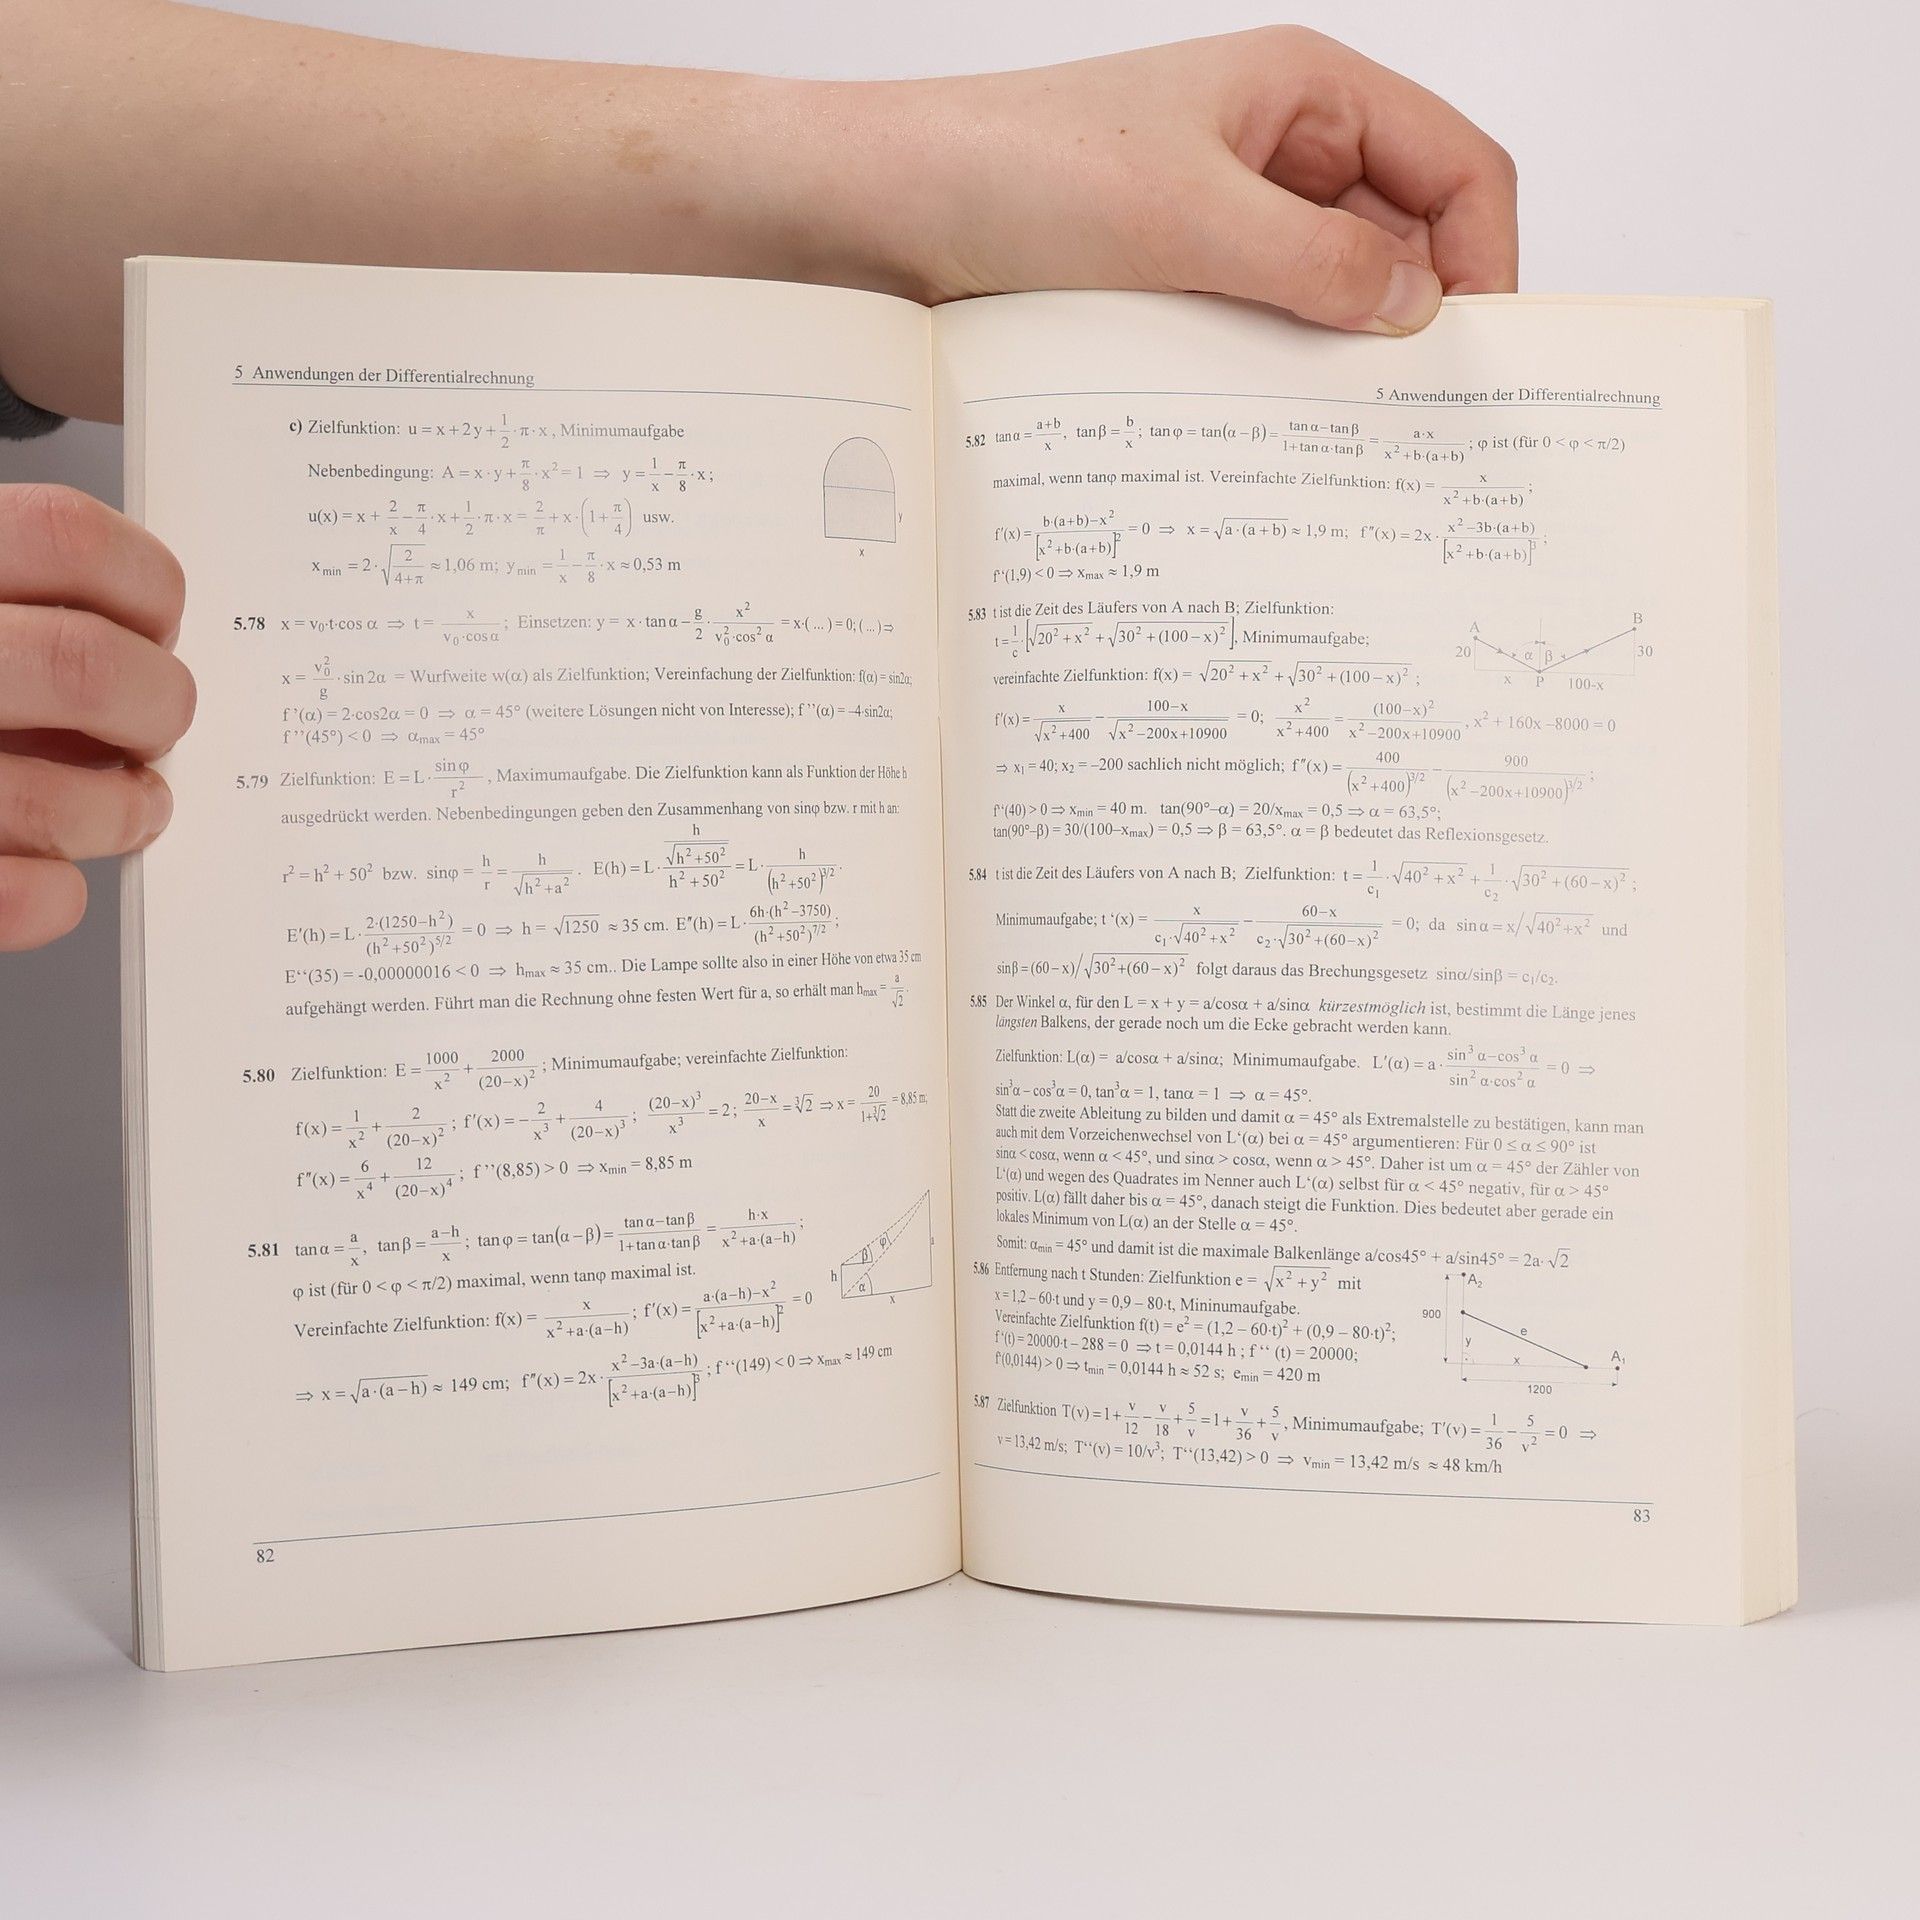 5 Anwendungen der Differentialrechnung
c) Zielfunktion: u = x + 2y + 1/2 · π · x , Minimumaufgabe
Nebenbedingung: A = x · y + π/8 · x² = 1 ⇒ y = 1/x − π/8 · x ;
u(x) = x + 2/x − π/4 · x + 1/2 · π · x = 2/π + x · (1 + π/4) usw.
x_min = 2 · √(2/(4+π)) ≈ 1,06 m; y_min = 1/x − π/8 · x ≈ 0,53 m
x
y
5.78 x = v₀·t·cos α ⇒ t = x/(v₀·cos α) ; Einsetzen: y = x · tan α − g/2 · x²/(v₀²·cos² α) = x·( ... ) = 0; ( ... ) ⇒
x = v₀²/g · sin 2α = Wurfweite w(α) als Zielfunktion; Vereinfachung der Zielfunktion: f(α) = sin2α;
f ’(α) = 2·cos2α = 0 ⇒ α = 45° (weitere Lösungen nicht von Interesse); f ’’(α) = –4·sin2α;
f ’’(45°) < 0 ⇒ α_max = 45°
5.79 Zielfunktion: E = L · sin φ/r² , Maximumaufgabe. Die Zielfunktion kann als Funktion der Höhe h
ausgedrückt werden. Nebenbedingungen geben den Zusammenhang von sinφ bzw. r mit h an:
r² = h² + 50² bzw. sinφ = h/r = h/√(h²+a²) . E(h) = L · (h/√(h²+50²))/(h²+50²) = L · h/(h²+50²)^(3/2) .
E′(h) = L · 2·(1250−h²)/(h²+50²)^(5/2) = 0 ⇒ h = √1250 ≈ 35 cm. E″(h) = L · 6h·(h²−3750)/(h²+50²)^(7/2) ;
E‘‘(35) = -0,00000016 < 0 ⇒ h_max ≈ 35 cm.. Die Lampe sollte also in einer Höhe von etwa 35 cm
aufgehängt werden. Führt man die Rechnung ohne festen Wert für a, so erhält man h_max = a/√2 .
5.80 Zielfunktion: E = 1000/x² + 2000/(20−x)² ; Minimumaufgabe; vereinfachte Zielfunktion:
f(x) = 1/x² + 2/(20−x)² ; f′(x) = −2/x³ + 4/(20−x)³ ; (20−x)³/x³ = 2 ; (20−x)/x = ∛2 ⇒ x = 20/(1+∛2) = 8,85 m;
f″(x) = 6/x⁴ + 12/(20−x)⁴ ; f ’’(8,85) > 0 ⇒ x_min = 8,85 m
5.81 tan α = a/x , tan β = (a−h)/x ; tan φ = tan(α − β) = (tan α − tan β)/(1 + tan α·tan β) = h·x/(x² + a·(a−h)) ;
φ ist (für 0 < φ < π/2) maximal, wenn tanφ maximal ist.
Vereinfachte Zielfunktion: f(x) = x/(x² + a·(a−h)) ; f′(x) = (a·(a−h) − x²)/[x² + a·(a−h)]² = 0
⇒ x = √(a·(a−h)) ≈ 149 cm; f″(x) = 2x · (x² − 3a·(a−h))/[x² + a·(a−h)]³ ; f ‘‘(149) < 0 ⇒ x_max ≈ 149 cm
h
β
φ
α
x
82
5 Anwendungen der Differentialrechnung
5.82 tan α = (a+b)/x , tan β = b/x ; tan φ = tan(α − β) = (tan α − tan β)/(1 + tan α·tan β) = a·x/(x² + b·(a+b)) ; φ ist (für 0 < φ < π/2)
maximal, wenn tanφ maximal ist. Vereinfachte Zielfunktion: f(x) = x/(x² + b·(a+b)) ;
f′(x) = (b·(a+b) − x²)/[x² + b·(a+b)]² = 0 ⇒ x = √(a·(a+b)) ≈ 1,9 m; f″(x) = 2x · (x² − 3b·(a+b))/[x² + b·(a+b)]³ ;
f‘‘(1,9) < 0 ⇒ x_max ≈ 1,9 m
5.83 t ist die Zeit des Läufers von A nach B; Zielfunktion:
t = 1/c · [√(20² + x²) + √(30² + (100 − x)²)], Minimumaufgabe;
vereinfachte Zielfunktion: f(x) = √(20² + x²) + √(30² + (100 − x)²) ;
A
B
20
α
β
30
x
P
100-x
f′(x) = x/√(x²+400) − (100−x)/√(x²−200x+10900) = 0; x²/(x²+400) = (100−x)²/(x²−200x+10900) , x² + 160x −8000 = 0
⇒ x₁ = 40; x₂ = –200 sachlich nicht möglich; f″(x) = 400/(x²+400)^(3/2) − 900/(x²−200x+10900)^(3/2) ;
f‘‘(40) > 0 ⇒ x_min = 40 m. tan(90°–α) = 20/x_max = 0,5 ⇒ α = 63,5°;
tan(90°–β) = 30/(100–x_max) = 0,5 ⇒ β = 63,5°. α = β bedeutet das Reflexionsgesetz.
5.84 t ist die Zeit des Läufers von A nach B; Zielfunktion: t = 1/c₁ · √(40² + x²) + 1/c₂ · √(30² + (60 − x)²) ;
Minimumaufgabe; t ‘(x) = x/(c₁·√(40²+x²)) − (60−x)/(c₂·√(30²+(60−x)²)) = 0; da sin α = x/√(40²+x²) und
sinβ = (60−x)/√(30²+(60−x)²) folgt daraus das Brechungsgesetz sinα/sinβ = c₁/c₂.
5.85 Der Winkel α, für den L = x + y = a/cosα + a/sinα kürzestmöglich ist, bestimmt die Länge jenes
längsten Balkens, der gerade noch um die Ecke gebracht werden kann.
Zielfunktion: L(α) = a/cosα + a/sinα; Minimumaufgabe. L′(α) = a · (sin³ α − cos³ α)/(sin² α·cos² α) = 0 ⇒
sin³α – cos³α = 0, tan³α = 1, tanα = 1 ⇒ α = 45°.
Statt die zweite Ableitung zu bilden und damit α = 45° als Extremalstelle zu bestätigen, kann man
auch mit dem Vorzeichenwechsel von L‘(α) bei α = 45° argumentieren: Für 0 ≤ α ≤ 90° ist
sinα < cosα, wenn α < 45°, und sinα > cosα, wenn α > 45°. Daher ist um α = 45° der Zähler von
L‘(α) und wegen des Quadrates im Nenner auch L‘(α) selbst für α < 45° negativ, für α > 45°
positiv. L(α) fällt daher bis α = 45°, danach steigt die Funktion. Dies bedeutet aber gerade ein
lokales Minimum von L(α) an der Stelle α = 45°.
Somit: α_min = 45° und damit ist die maximale Balkenlänge a/cos45° + a/sin45° = 2a·√2
5.86 Entfernung nach t Stunden: Zielfunktion e = √(x² + y²) mit
x = 1,2 – 60·t und y = 0,9 – 80·t, Mininumaufgabe.
Vereinfachte Zielfunktion f(t) = e² = (1,2 – 60·t)² + (0,9 – 80·t)²;
f ‘(t) = 20000·t – 288 = 0 ⇒ t = 0,0144 h ; f ‘‘ (t) = 20000;
f‘(0,0144) > 0 ⇒ t_min = 0,0144 h ≈ 52 s; e_min = 420 m
A₂
900
e
y
x
A₁
1200
5.87 Zielfunktion T(v) = 1 + v/12 − v/18 + 5/v = 1 + v/36 + 5/v , Minimumaufgabe; T′(v) = 1/36 − 5/v² = 0 ⇒
v = 13,42 m/s; T‘‘(v) = 10/v³; T‘‘(13,42) > 0 ⇒ v_min = 13,42 m/s ≈ 48 km/h
83